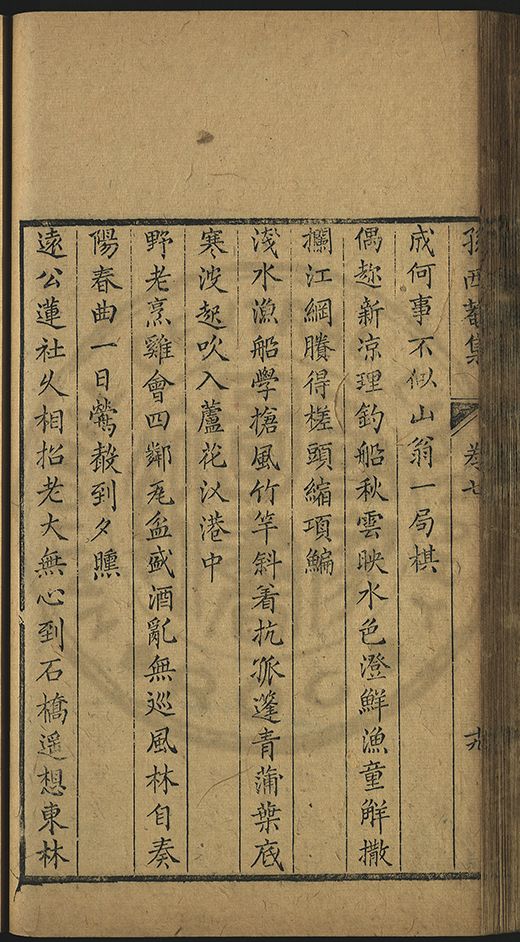 孫西菴集 卷七 十九
成何事不似山翁一局棋
偶趂新凉理釣船秋雲映水色澄鮮漁童觧撒
攔江網賸得槎頭縮項鯿
淺水漁船學搶風竹竿斜着抗孤篷青蒲葉底
寒波起吹入蘆花汊港中
野老烹雞會四鄰瓦盆盛酒亂無巡風林自奏
陽春曲一日鶯聲到夕曛
遠公蓮社久相招老大無心到石橋遥想東林